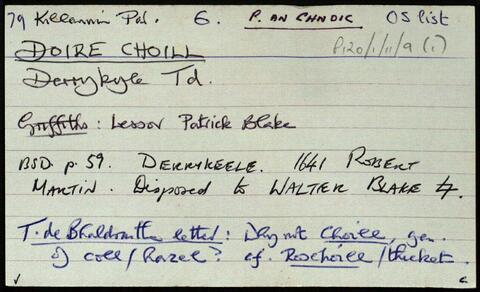 79 Killannin Par. 6. P. AN CHNOIC OS list
P120/1/11/9 (1)
DOIRE CHOILL
Derrykyle Td.
Griffiths: Lessor Patrick Blake
BSD. p. 59. DERRYKEELE. 1641 ROBERT
MARTIN. Disposed to WALTER BLAKE
T. de Bhaldraithe letter: Why not Choill, gen.
of coll/hazel? cf. Roschoill/thicket.